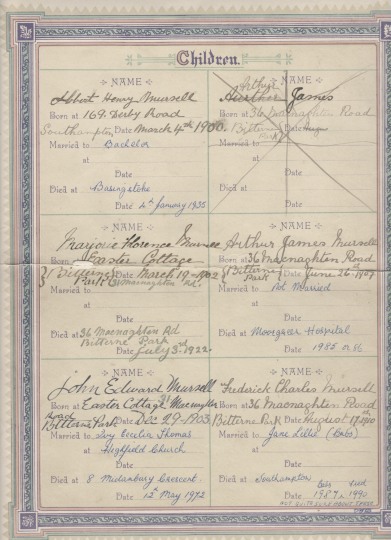 Children.
NAME
Albert Henry Mursell
Born at 169. Derby Road
Southampton Date March 4th 1900.
Married to Bachelor
at
Date
Died at Basingstoke
Date 4th January 1955
NAME
Arthur
James
Born at 36 Macnaghten Road
Bitterne Park Date
Married to
at
Date
Died at
Date
NAME
Marjorie Florence
Born at Easter Cottage
Bitterne Park Date March 19th 1902
Macnaghten Rd.
Married to
at
Date
Died at 36 Macnaghten Rd
Bitterne Park
Date July 3rd 1922.
NAME
Arthur James Mursell
Born at 36 Macnaghten Road
Bitterne Park Date June 26th 1907
Married to Not Married
at
Date
Died at Moorgreen Hospital
Date 1985 or 86
NAME
John Edward Mursell
Born at Easter Cottage 31 Macnaghten
Road
Bitterne Park Date Dec 29th 1903
Married to Ivy Cecelia Thomas
at Highfield Church
Date
Died at 8 Midanbury Crescent.
Date 12th May 1972
NAME
Frederick Charles Mursell
Born at 36 Macnaghten Road
Bitterne Park Date August 17th 1910
Married to Jane Lillie (Babs)
at
Date
Died at Southampton
Date 1987 1990
NOT QUITE SURE ABOUT THESE